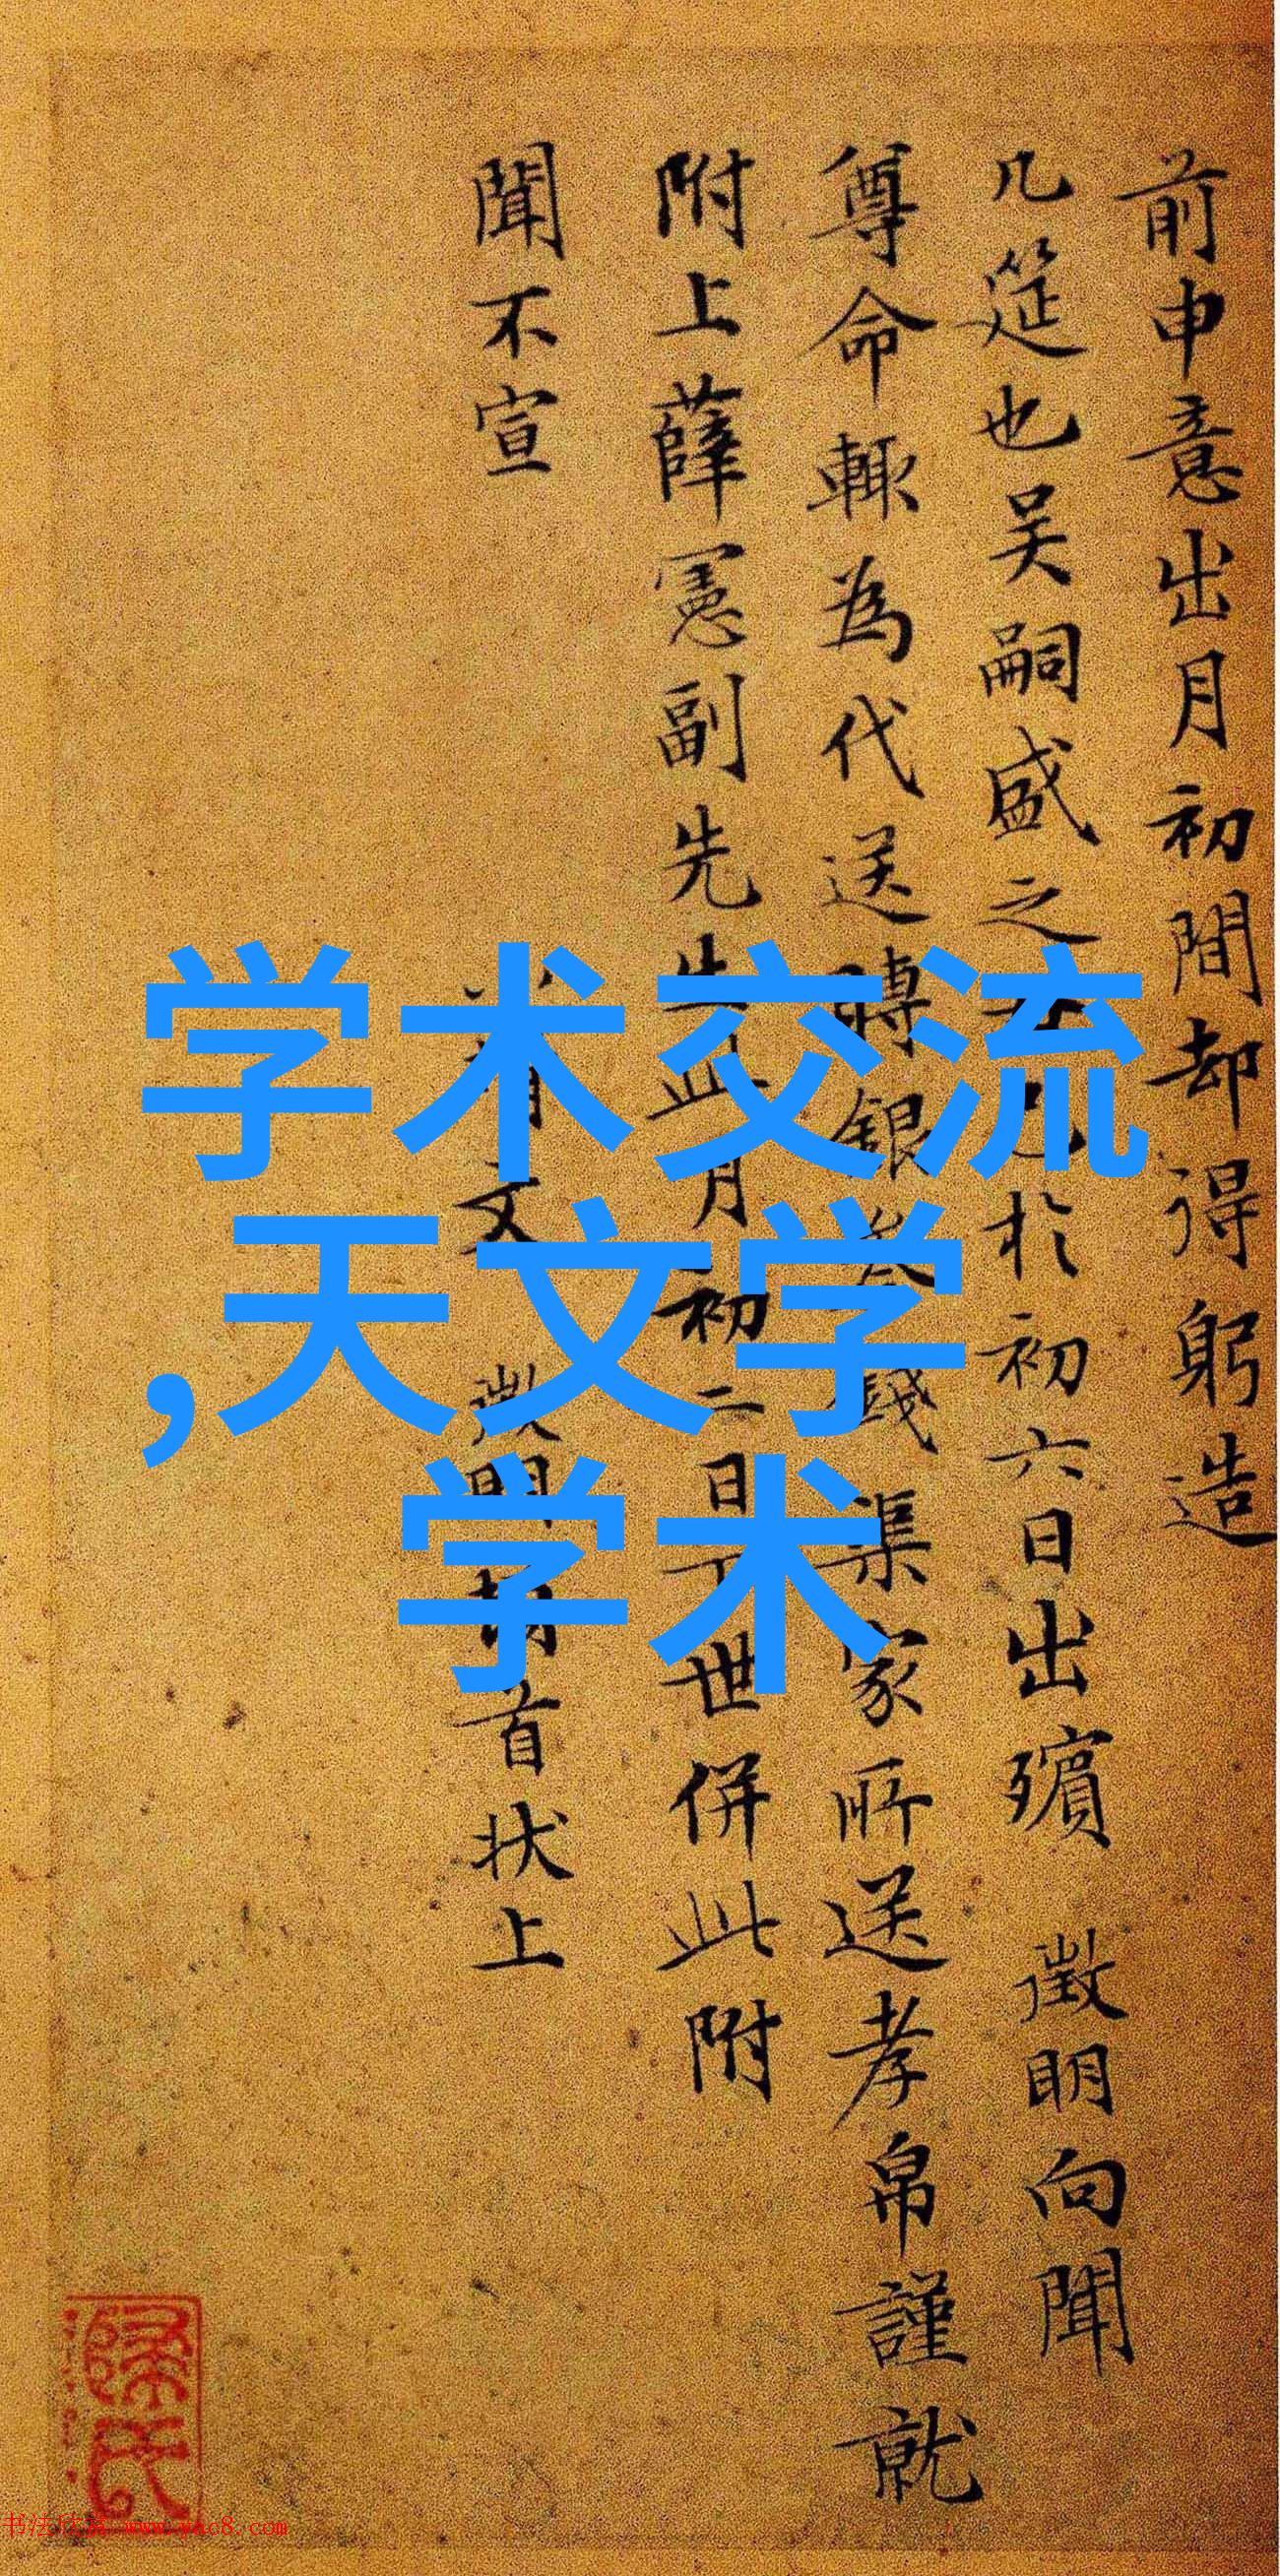 前申意出月初間却得躬造
几筵也吴嗣盛之於初六日出殯 徵明向聞
尊命輒為代送賻銀錢渠家所送孝帛謹就
附上薛憲副先生月初二日世併此附
聞不宣
文徵明首状上
学术交流
,天文学
学术
书法欣赏 www.yac8.com